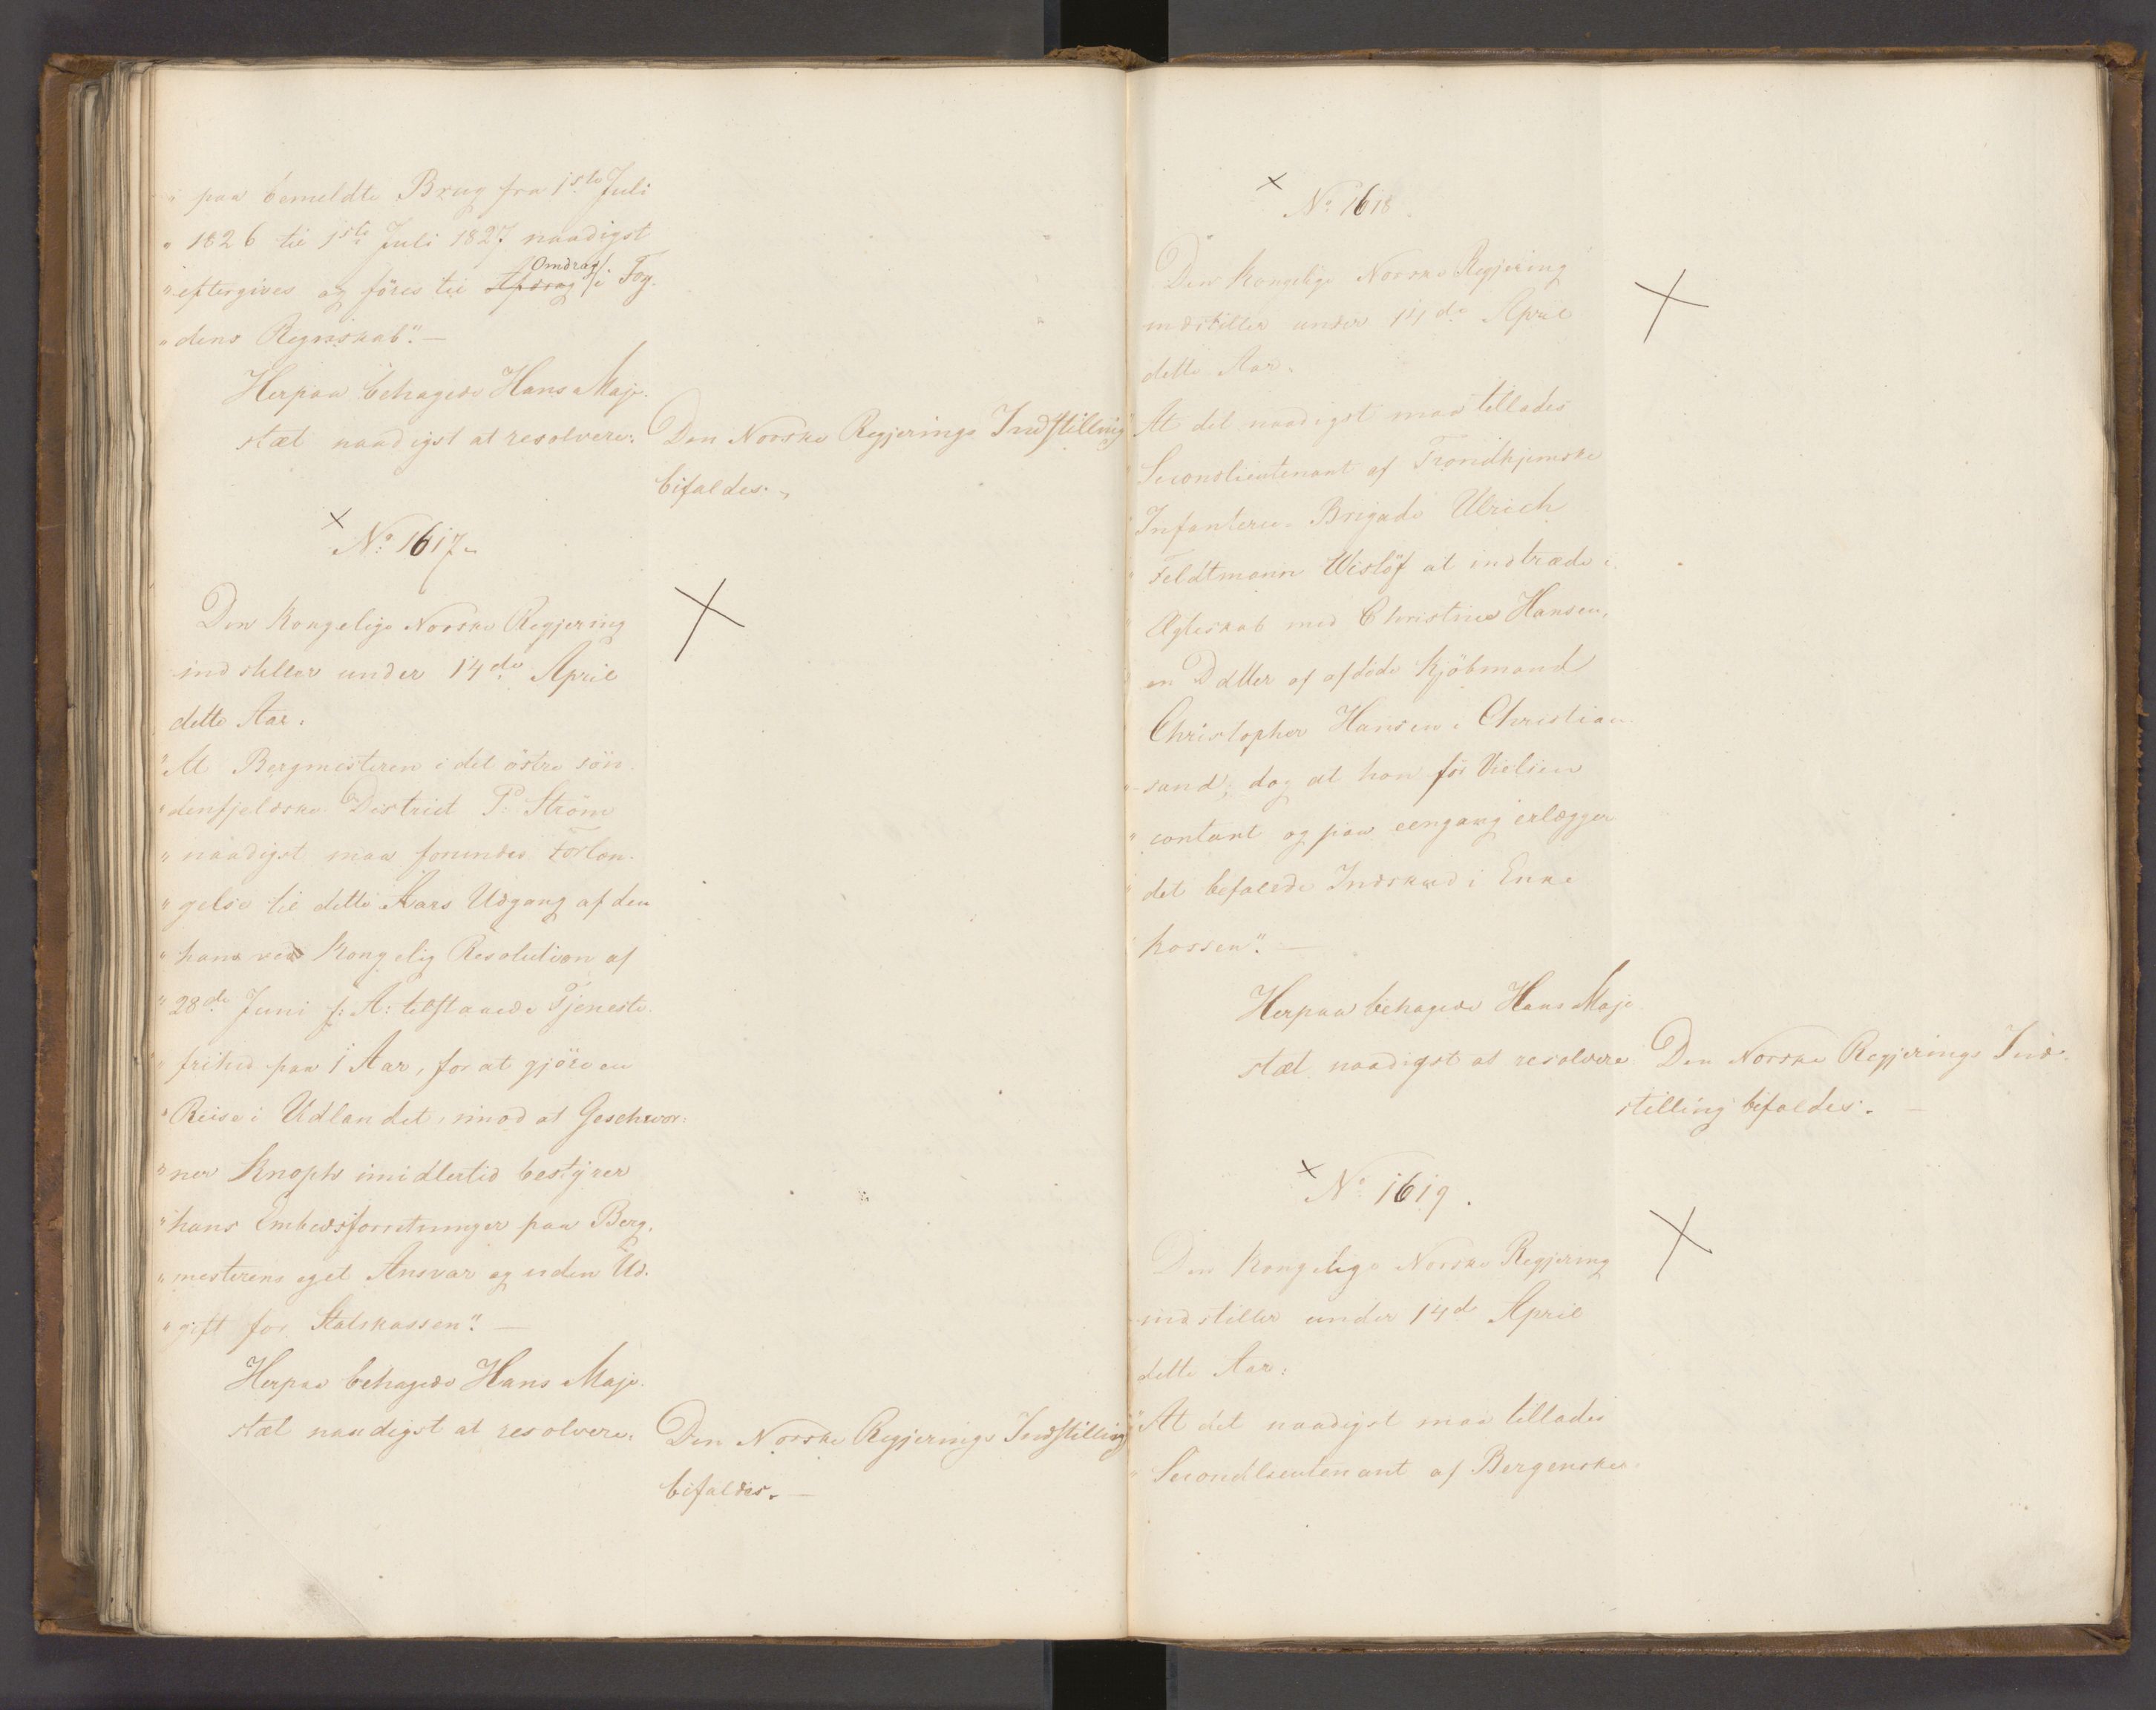 " paa bemeldte Brug fra 1ste Juli
" 1826 til 1ste Juli 1827 naadigst
" eftergives og föres til Afdrag Omdrag i Fog-
" dens Regnskab". —
Herpaa behagede Hans Maje-
stæt naadigst at resolvere: Den Norske Regjerings Indstilling
bifaldes. —
× No 1617.
Den Kongelige Norske Regjering
indstiller under 14de April
dette Aar:
" At Bergmesteren i det östre sön-
" denfjeldske District P. Ström
" naadigst maa forundes Forlæn-
" gelse til dette Aars Udgang af den
" ham ved Kongelig Resolution af
" 28de Juni f: A: tilstaaede Tjeneste-
" frihed paa 1 Aar, for at gjöre en
" Reise i Udlandet, imod at Geschwor-
" ner Knoph imidlertid bestyrer
" hans Embedsforretninger paa Berg-
" mesterens eget Ansvar og uden Ud-
" gift for Statskassen". —
Herpaa behagede Hans Maje-
stæt naadigst at resolvere: Den Norske Regjerings Indstilling
bifaldes. —
× No 1618.
Den Kongelige Norske Regjering
indstiller under 14de April
dette Aar:
" At det naadigst maa tillades
" Secondlieutenant af Trondhjemske
" Infanterie-Brigade Ulrich
" Feldtmann Wislöf at indtræde i
" Ægteskab med Christine Hansen,
" en Datter af afdöde Kjöbmand
" Christopher Hansen i Christian-
" sand, dog at han för Vielsen
" contant og paa eengang erlægger
" det befalede Indskud i Enke-
" kassen". —
Herpaa behagede Hans Maje-
stæt naadigst at resolvere: Den Norske Regjerings Ind-
stilling bifaldes. —
× No 1619.
Den Kongelige Norske Regjering
indstiller under 14de April
dette Aar:
" At det naadigst maa tillades
" Secondlieutenant af Bergenske